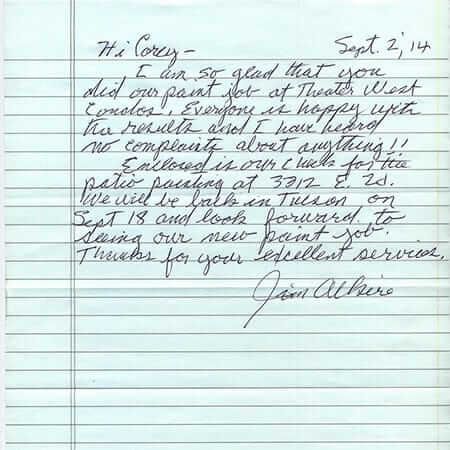 Hi Corey - Sept. 2, '14
I am so glad that you
did our paint job at Theater West
Condos. Everyone is happy with
the results and I have heard
no complaints about anything!!
Enclosed is our check for the
patio painting at 3312 E. 2d.
We will be back in Tucson on
Sept 18 and look forward to
seeing our new paint job.
Thanks for your excellent services.
Jim